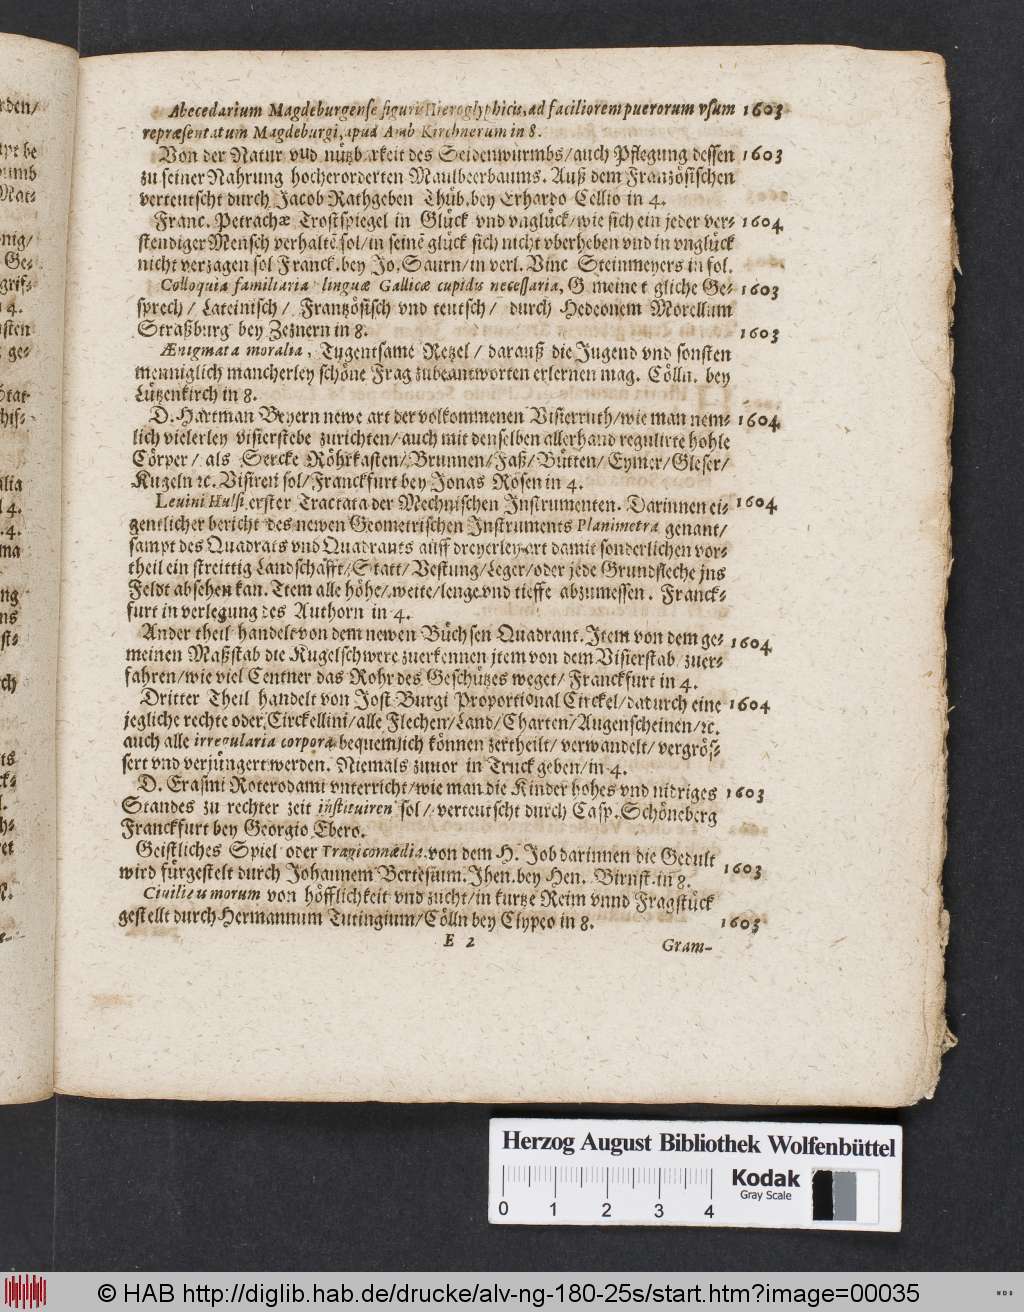 rden/
upt be
Mat-
nig/
Ge-
grif-
1 4.
ge-
Stat
alia
1 4.
.4.
ma
ng
ns
st-
ch
ts
ck-
l.
h-
ret
R.
Abecedarium Magdeburgense figuris Hieroglyphicis, ad faciliorem puerorum vsum 1603
repræsentatum Magdeburgi, apud Amb Kirchnerum in 8.
Von der Natur vnd nützbarkeit des Seidenwurmbs/ auch Pflegung dessen 1603
zu seiner Nahrung hocherorderten Maulbeerbaums. Auß dem Französischen
verteutscht durch Jacob Rathgeben Thüb. bey Erhardo Cellio in 4.
Franc. Petrachæ Trostspiegel in Glück vnd vnglück/ wie sich ein jeder ver- 1604
stendiger Mensch verhaltē sol/ in seinē glück sich nicht vberheben vnd in vnglück
nicht verzagen sol Franck. bey Jo. Saurn/ in verl. Vinc Steinmeyers in fol.
Colloquia familiaria linguæ Gallicæ cupidis necessaria, G meine t gliche Ge- 1603
sprech/ Lateinisch/ Frantzösisch vnd teutsch/ durch Hedeonem Morellum
Straßburg bey Zeznern in 8. 1603
Ænigmata moralia, Tugentsame Retzel/ darauß die Jugend vnd sonsten
menniglich mancherley schöne Frag zubeantworten erlernen mag. Cölln. bey
Lützenkirch in 8.
D. Hartman Beyern newe art der volkommenen Visierruth/ wie man nem- 1604
lich vielerley visierstebe zurichten/ auch mit denselben allerhand regulirte hohle
Cörper/ als Sercke Röhrkasten/ Brunnen/ Faß/ Bütten/ Eymer/ Gleser/
Kugeln ꝛc. Visiren sol/ Franckfurt bey Jonas Rosen in 4.
Levini Hulsi erster Tractata der Mechnischen Instrumenten. Darinnen ei- 1604
gentlicher bericht des newen Geometrischen Instruments Planimetra genant/
sampt des Quadrats vnd Quadrants auff dreyerley art damit sonderlichen vor-
theil ein streittig Landschafft/ Statt/ Vestung/ Leger/ oder jede Grundfleche jns
Feldt absehen kan. Item alle höhe/ weite/ lenge vnd tieffe abzumessen. Franck-
furt in verlegung des Authorn in 4.
Ander theil handelt von dem newen Büchsen Quadrant. Item von dem ge- 1604
meinen Maßstab die Kugelschwere zuerkennen jtem von dem Visierstab zuer-
fahren/ wie viel Centner das Rohr des Geschützes weget/ Franckfurt in 4.
Dritter Theil handelt von Jost Burgi Proportional Circkel/ dadurch eine 1604
jegliche rechte oder Circkellini/ alle Flechen/ Land/ Charten/ Augenscheinen/ ꝛc.
auch alle irregularia corpora bequemlich können zertheilt/ verwandelt/ vergrös-
sert vnd verjüngert werden. Niemals zuvor in Truck geben/ in 4.
D. Erasmi Roterodami vnterricht/ wie man die Kinder hohes vnd nidriges 1603
Standes zu rechter zeit instituiren sol/ verteutscht durch Casp. Schöneberg
Franckfurt bey Georgio Ebero.
Geistliches Spiel oder Tragicomædia von dem H. Job darinnen die Gedult
wird fürgestelt durch Johannem Bertesium. Jhen. bey Hen. Birnst. in 8. 1603
Civilieu morum von höfflichkeit vnd zucht/ in kurtze Reim vnnd Fragstück
gestellt durch Hermannum Tutingium/ Cölln bey Clypeo in 8. 1603
E 2
Gram-
Herzog August Bibliothek Wolfenbüttel
Kodak
Gray Scale
0 1 2 3 4
© HAB http://diglib.hab.de/drucke/alv-ng-180-25s/start.htm?image=00035